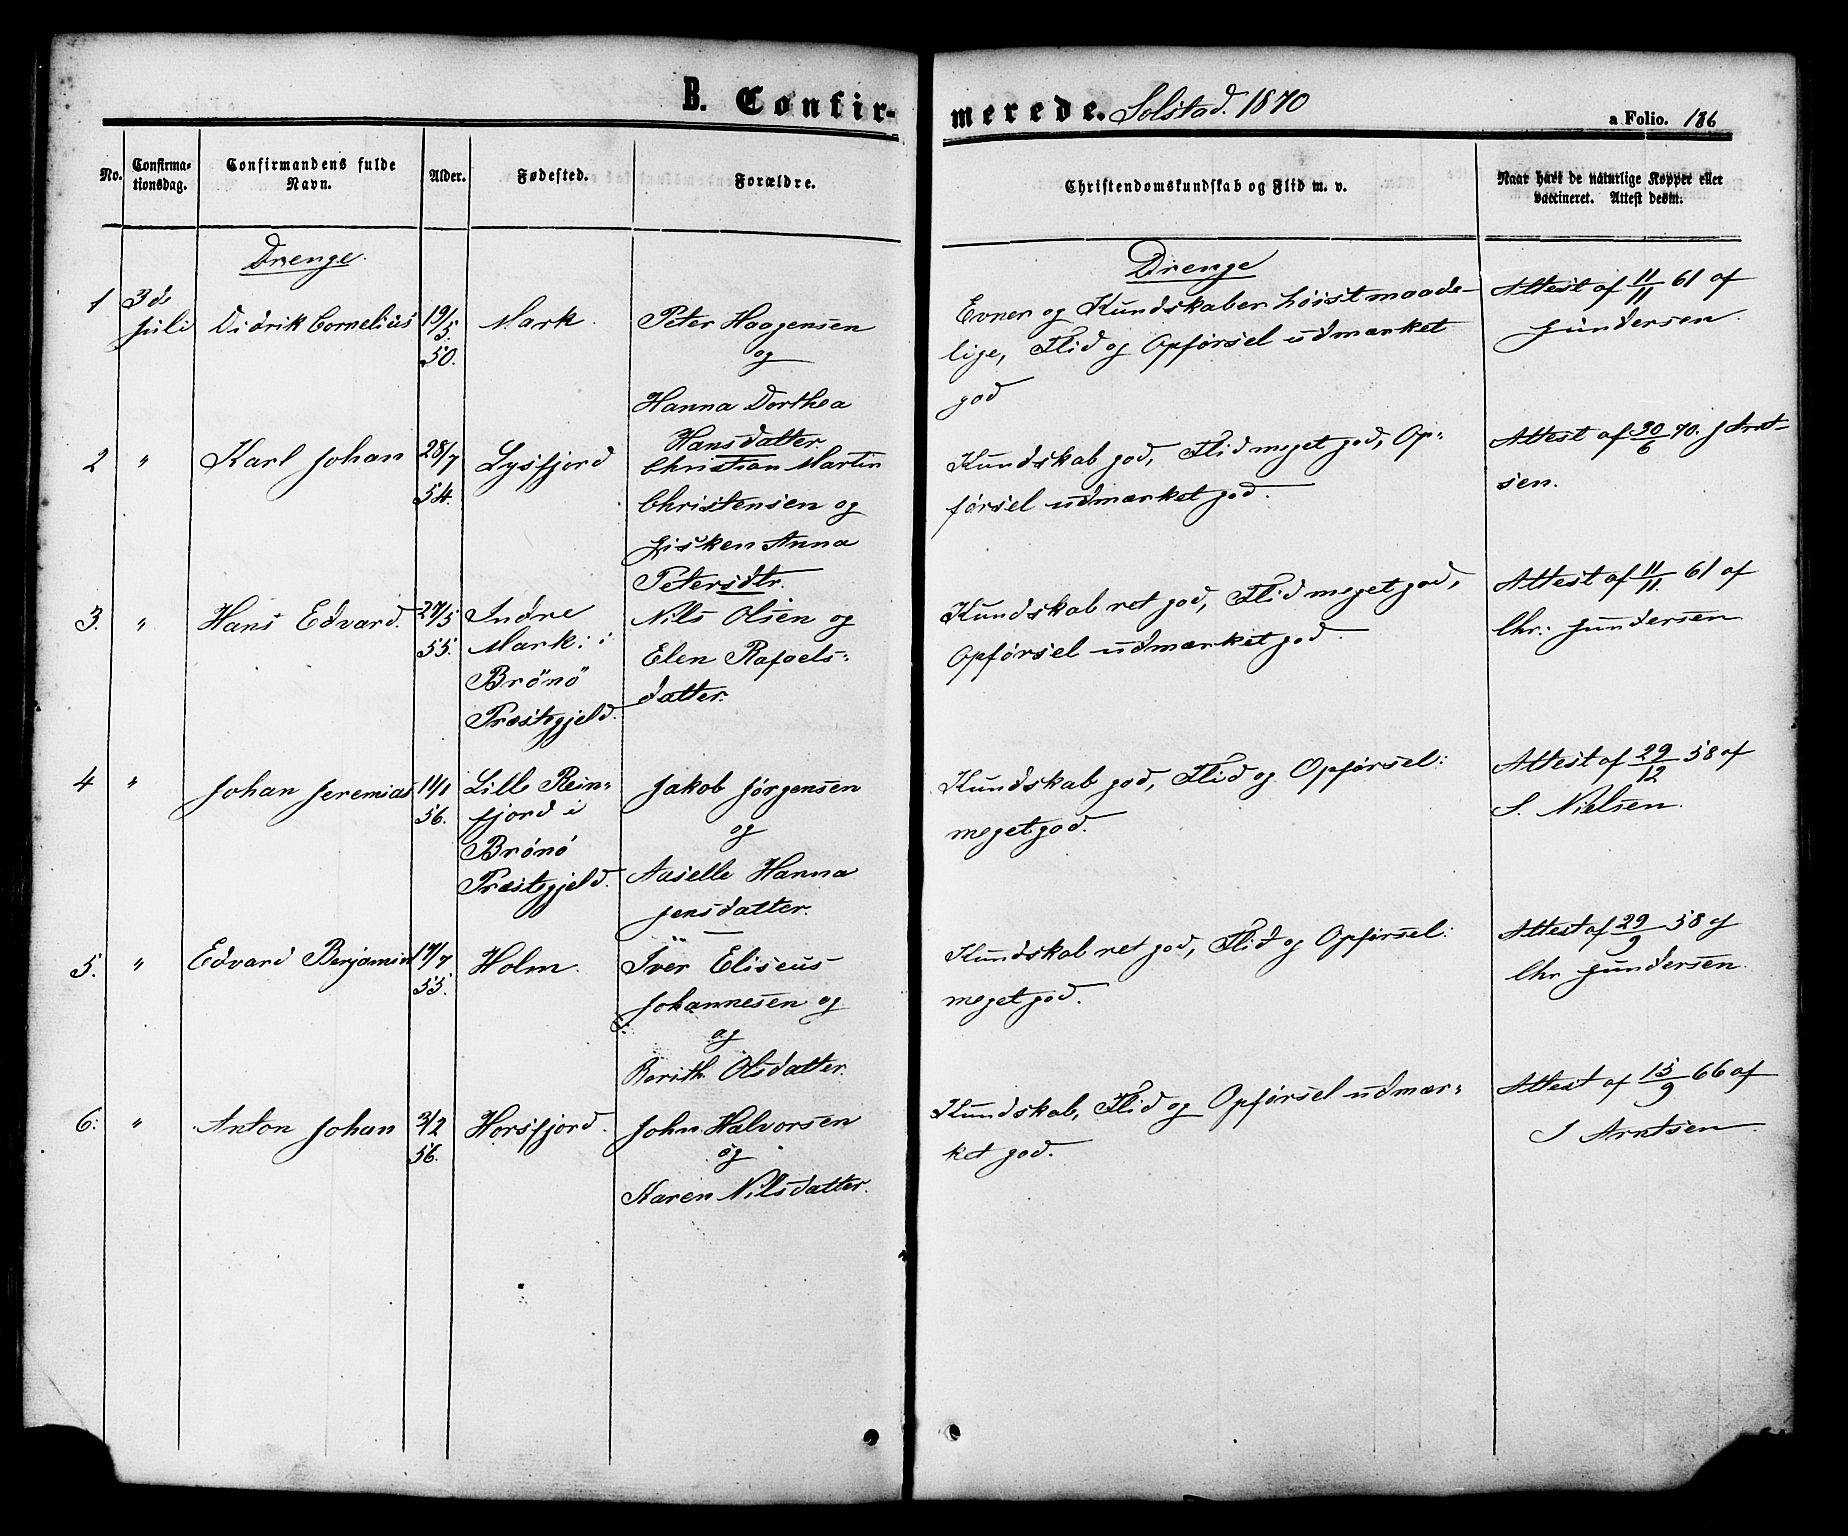 B. Confirmerede. Solstad. 1870
a Folio. 186
No.
Confirmationsdag.
Confirmandens fulde Navn.
Alder.
Fødested.
Forældre.
Christendomskundskab og Flid m. v.
Naar havt de naturlige Kopper eller vaccineret. Attest derom.
Drenge.
Drenge
1
3de Juli
Didrik Cornelius
19/5 50.
Mark.
Peter Haagensen
og
Hanna Dorthea
Hansdatter
Evner og Kundskaber høist maade-
lige, Flid og Opførsel udmærket
god
Attest af 11/11 61 af
Gundersen.
2
"
Karl Johan
28/7 54.
Lysfjord
Christian Martin
Christensen og
Anna
Petersdtr.
Kundskab god, Flid meget god, Op-
førsel udmærket god.
Attest af 30/6 70. J Arnt-
sen.
3.
"
Hans Edvard.
27/5 55.
Indre
Mark: i
Brönö
Præstegjeld.
Nils Olsen og
Elen Rafaels-
datter.
Kundskab ret god, Flid meget god,
Opførsel udmærket god.
Attest af 11/11. 61 af
Chr: Gundersen
4
"
Johan Jeremias
56.
Lille Rein-
fjord i
Brönö
Præstegjeld.
Jakob Jørgensen
og
Aaselle Hanna
Jensdatter.
Kundskab god, Flid og Opførsel:
meget god.
Attest af 29/12 58 af
S. Nielsen.
5.
"
Edvard Benjamin
17/7 55.
Holm.
Iver Eliseus
Johannesen og
og
Berith Olsdatter.
Kundskab ret god, Flid og Opførsel:
meget god.
Attest af 29/9 58 af
Chr Gundersen.
6:
"
Anton Johan
2/2 56.
Horsfjord.
John Halvorsen
og
Karen Nilsdatter.
Kundskab, Flid og Opførsel udmær-
ket god.
Attest af 15/9 66 af
J Arntsen